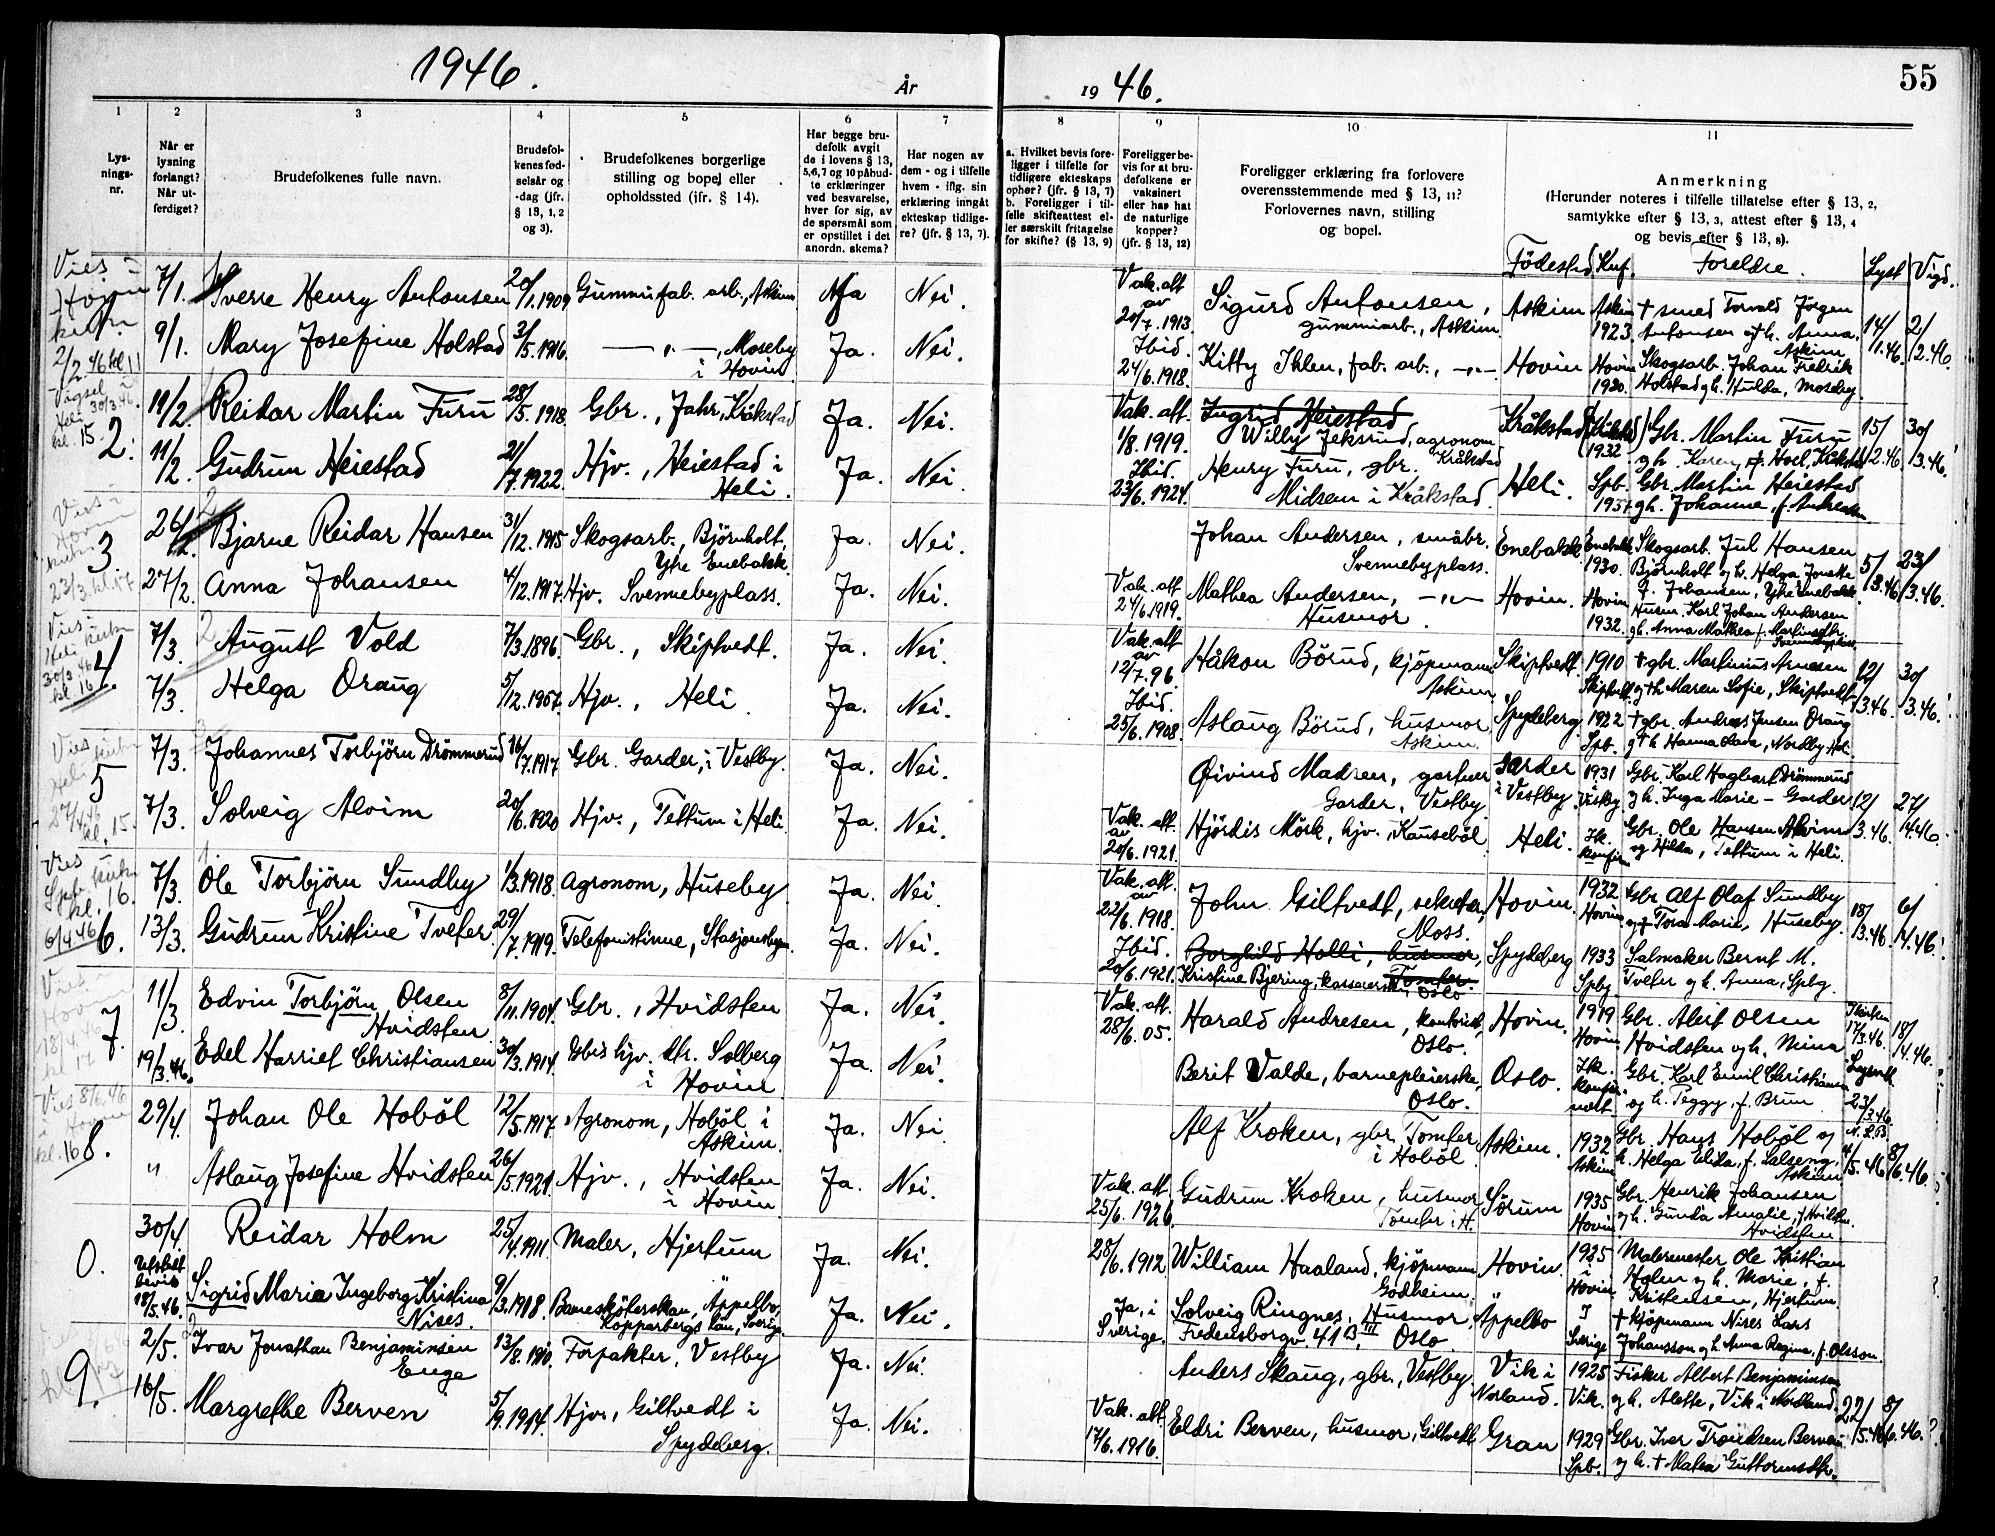 1946.
År
19 46.
55
1
2
3
4
5
6
7
8
9
10
11
Lys-
nings-
nr.
Når er
lysning
forlangt?
Når ut-
ferdiget?
Brudefolkenes fulle navn.
Brudefol-
kenes fød-
selsår og
-dag (jfr.
§ 13, 1, 2
og 3).
Brudefolkenes borgerlige
stilling og bopel eller
opholdssted (ifr. § 14).
Har begge bru-
defolk avgit
de i lovens § 13,
5,6,7 og 10 påbud-
te erklæringer
ved besvarelse,
hver for sig, av
de spørsmål som
er opstillet i det
anordn. skema?
Har nogen av
dem - og i tilfelle
hvem - iflg. sin
erklæring inngått
ekteskap tidlige-
re? (jfr. § 13, 7).
a. Hvilket bevis fore-
ligger i tilfelle for
tidligere ekteskaps
ophør? (jfr. § 13, 7)
b. Foreligger i til-
felle skifteattest el-
ler særskilt fritagelse
for skifte? (§ 13, 9)
Foreligger be-
vis for at bru-
defolkene er
vaksinert
eller har hat
de naturlige
kopper?
(jfr. § 13, 12)
Foreligger erklæring fra forlovere
overensstemmende med § 13, 11?
Forlovernes navn, stilling
og bopel.
Anmerkning
(Herunder noteres i tilfelle tillatelse efter § 13, 2,
samtykke efter § 13, 3, attest efter § 13, 4
og bevis efter § 13, 8).
Födested Knf. Foreldre. Lyst Vigd.
Vies i Hovin 2/2.46 kl 11
7/1. Sverre Henry Antonsen 20/1.1909 Gummifab. arb., Askim Ja Nei. Vak. att. av 20/7.1913 Sigurd Antonsen, gummiarb., Askim Askim Askim 1923 † smed Torvald Jörgen Antonsen og h. Anna, Askim 14/1.46 2/2.46
9/1. Mary Josefine Holstad 3/5.1916. — " —, Moseby i Hovin Ja. Nei. Ibid. 24/6.1918. Kitty Ihlen, fab. arb., — " — Hovin Hovin 1930. Skogsarb. Johan Fredrik Holstad og h. Hulda, Moseby
Vigsel Heli 30/3.46. kl. 15.
2. 11/2. Reidar Martin Furu 28/5.1918. Gbr., Jahr, Kråkstad Ja. Nei. Vak. att. 1/8.1919. Ingrid Heiestad Willy Jeksrud, agronom Kråkstad Kråkstad 1932 Gbr. Martin Furu og h. Karen, f. Hoel, Kråkstad 15/2.46 30/3.46.
11/2. Gudrun Heiestad 21/7.1922. Hjv., Heiestad i Heli. Ja. Nei. Ibid. 23/6.1921. Henry Furu, gbr. Midsem i Kråkstad Heli. Spb. 1937 Gbr. Martin Heiestad og h. Johanne, f. Andresen
Vies i Hovin 23/3. kl. 17
3. 26/2. Bjarne Reidar Hansen 31/12.1915 Skogsarb., Björnholt, Ytre Enebakk. Ja. Nei. Johan Andersen, småbr. Svennebyplass. Enebakk Enebakk 1930. Skogsarb. Jul Hansen Björnholt og h. Helga Jonette f. Johansen, Ytre Enebakk 5/3.46 23/3.46.
27/2. Anna Johansen 4/12.1917. Hjv. Svennebyplass. Ja. Nei. Vak. att. 24/6.1919. Mathea Andersen, — " — Husmor. Hovin. Hovin 1932. Husm. Karl Johan Andersen og h. Anna Mathea f. Martinsdtr. Svennebyplass
Vies i Heli kirke 30/3.46 kl. 16
4. 7/3. August Vold 7/3.1896. Gbr., Skiptvedt. Ja. Nei. Vak. att. av 12/7.96. Håkon Börud, kjöpmann Askim Skiptvedt. 1910 Skiptvedt † gbr. Martinius Arnesen og † h. Maren Sofie, Skiptvedt 12/3.46. 30/3.46.
7/3. Helga Oraug 5/12.1907. Hjv., Heli. Ja. Nei. Ibid. 25/6.1908 Aslaug Börud, husmor Askim. Spydeberg. 1922 Spb. † gbr. Andreas Jensen Oraug og † h. Hanna Olava, Nordby Heli.
Vies i Heli kirke 27/4.46 kl. 15.
5 7/3. Johannes Torbjörn Drömmerud 16/7.1917 Gbr. Garder, i Vestby. Ja. Nei. Øivind Madsen, gartner Garder, Vestby Garder i Vestby 1931 Vestby Gbr. Karl Hagbart Drömmerud og h. Inga Marie — Garder 12/3.46. 27/4.46.
7/3. Solveig Alvim 20/6.1920 Hjv., Tettum i Heli. Ja. Nei. Vak. att. av 20/6.1921. Hjördis Mörk, hjv., Kauseböl Heli. Ik. konfir. Gbr. Ole Hansen Alvim og Hilda, Tettum i Heli.
Vies Spb. kirke kl. 16. 6/4.46
6. 7/3. Ole Torbjörn Sundby 1/3.1918. Agronom, Huseby. Ja. Nei. Vak. att. av 22/6.1918. John Giltvedt, sekretær, Moss. Hovin. 1932 Hovin. Gbr. Alf Olaf Sundby og f. Tora Marie, Huseby. 18/3.46. 6/4.46.
13/3. Gudrun Kristine Tveter. 29/7.1919. Telefonistinne, Stasjonsbyen. Ja. Nei. Ibid. 20/6.1921. Borghild Holli, husmor, Tomter. Kristine Bjering, kassererske, Oslo Spydeberg 1933 Spbg. Salmaker Bernt M. Tveter og h. Anna, Spbg.
Vies i Hovin 18/4.46 kl. 17
7. 11/3. Edvin Torbjörn Olsen Hvidsten 8/11.1904. Gbr., Hvidsten Ja. Nei. Vak. att. 28/6.05. Harald Andresen, kontorist, Oslo. Hovin. 1919 Hovin. Gbr. Alert Olsen Hvidsten og h. Mina 17/3.46. 18/4.46.
19/3.46. Edel Harriet Christiansen 30/3.1914. Gbis hjv. dtr. Solberg i Hovin Ja. Nei. Berit Valde, barnepleierske, Oslo. Oslo. Ik. konfirmert. Gbr. Karl Emil Christiansen og h. Peggy, f. Brun. 23/3.46
Vies 8/6.46 i Hovin kl. 16
8. 29/4. Johan Ole Hoböl 12/5.1917. Agronom, Hoböl i Askim. Ja. Nei. Alf Kroken, gbr. Tomter i Hoböl. Askim. 1932 Askim Gbr. Hans Hoböl og h. Helga Elida, f. Salseng, Askim 4/5.46 8/6.46.
" Aslaug Josefine Hvidsten 26/5.1921. Hjv., Hvidsten i Hovin. Ja. Nei. Vak. att. 25/6.1926. Gudrun Kroken, husmor Tomter i H. Sörum 1935 Hovin. Gbr. Henrik Johansen og h. Gunda Amalie, Hvidsten
0. 30/4. Reidar Holm 25/4.1911 Maler, Hjertum Ja. Nei. 28/6.1912 William Haaland, kjöpmann Godheim. Hovin. 1925 i Hovin Malermester Ole Kristian Holm og h. Marie, f. Kristensen, Hjertum.
Utstedt bevis 18/5.46. Sigrid Maria Ingeborg Kristina Nises. 9/3.1918. Barnesköterskan, Äppelbo, Kopparbergs län, Sverige. Ja. Nei. Ja, i Sverige. Solveig Ringnes, Husmor, Fredensborgv. 41 B III Oslo. Äppelbo I Sverige † kjöpmann Nises Lars Johansson og h. Anna Regina, f. Olsson.
9. 2/5. Ivar Jonathan Benjaminsen Enge 13/8.1910. Forpakter, Vestby Ja. Nei. Anders Skaug, gbr., Vestby. Vik i Norland. 1925 Vik. Fisker Albert Benjaminsen og h. Alette, Vik i Nordland. 22/5.46 8/6.46.?
16/5. Margrethe Berven 5/9.1914. Hjv., Giltvedt i Spydeberg. Ja. Nei. Vak. att. 17/6.1916. Eldri Berven, husmor, Giltvedt Gran 1929 Spb. Gbr. Iver Trondsen Berven og h. † Matea Guttormsdtr.